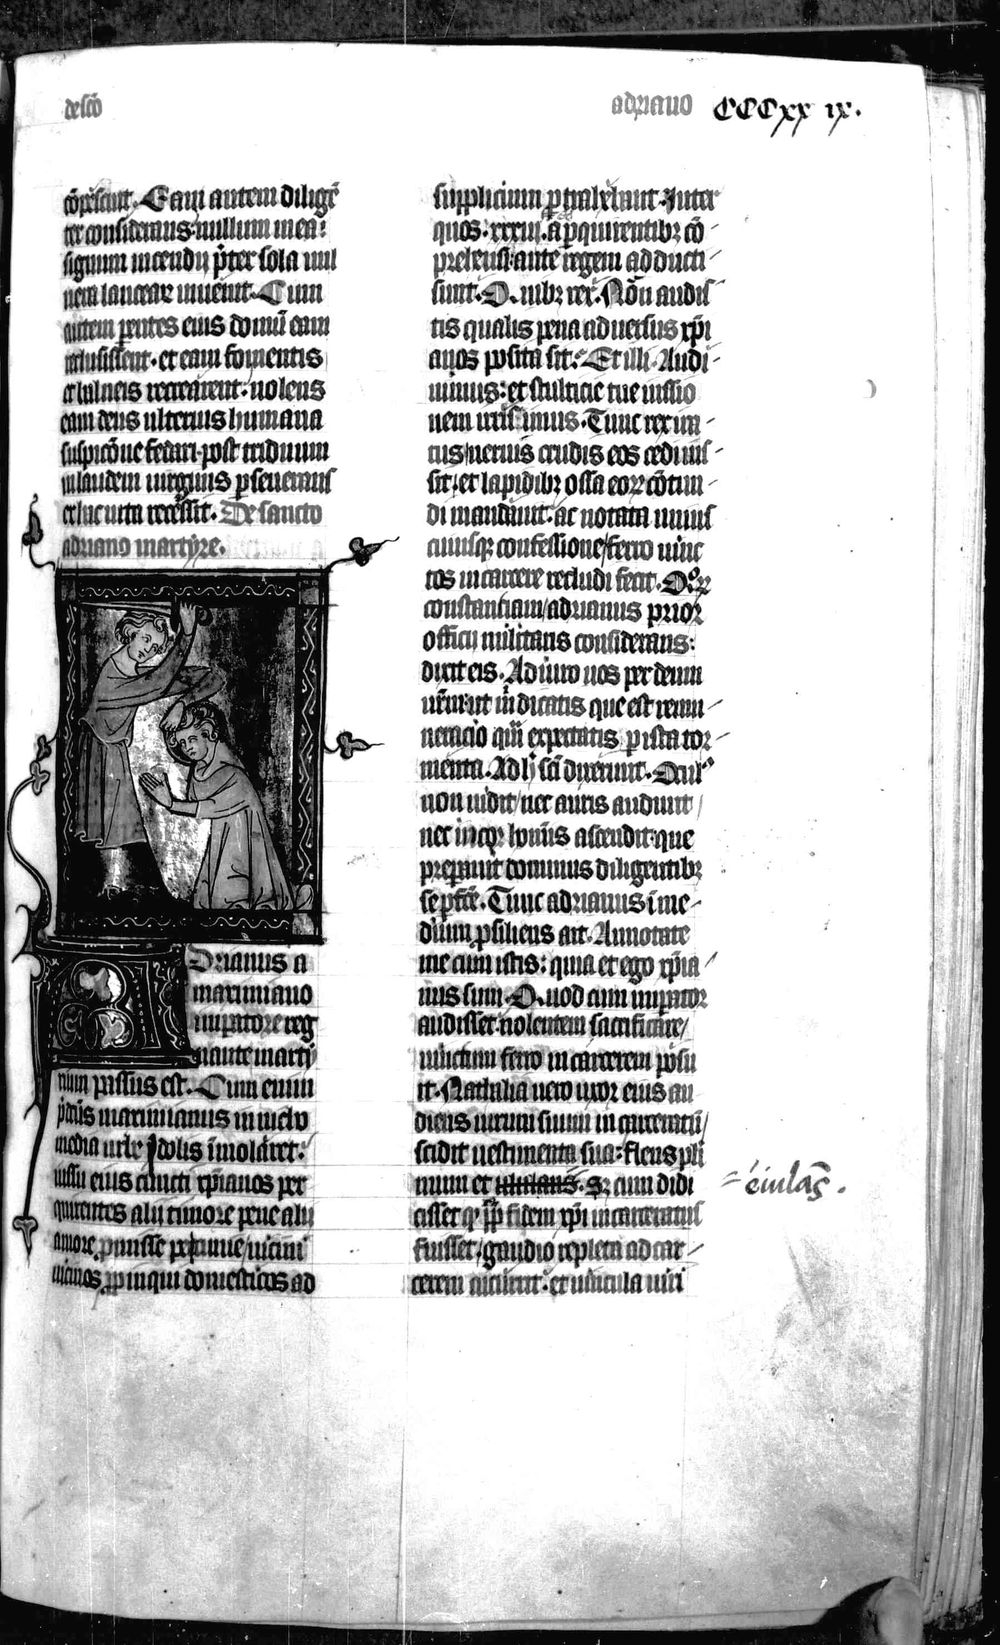 de scō
adriano CCCxx ix.
cōpescuit. Eam autem diligē
ter considerans. nullum in ea
signum incendij p̄ter sola uul
nera lanceae inuenit. Cum
autem parentes eius domū eam
reclusissent. et eam fomentis
et balneis recrearent. nolens
eam deus ulterius humana
suspicōne fedari. post triduum
in laudem uirginis perseuerans
ex hac uita recessit. De sancto
adriano martyre.
Adrianus a
maximiano
imperatore reg
nante marti
rium passus est. Cum enim
p̄dc̄us maximianus in nicho
media urbe ydolis īmolaret.
iussu eius cuncti xp̄ianos per
quirentes alij timore pene alij
amore promisse pecunie/ uicini
uicinos. propinqui domesticos ad
supplicium pertrahebant. Inter
quos. xxxiij. a perquirentibꝫ cō
prehensi. ante regem adducti
sunt. Quibꝫ rex. Nōn audis
tis qualis pena aduersus xp̄i
anos posita sit. Et illi. Audi
uimus: et stulticie tue iussio
nem irrisimus. Tunc rex ira
tus/ neruis crudis eos cedi ius
sit. et lapidibꝫ ossa eoꝝ cōtun
di mandauit. ac notata unius
cuiusqꝫ confessione/ ferro uinc
tos in carcere recludi fecit. Quoꝝ
constantiam/ adrianus prior
officij militaris considerans:
dixit eis. Adiuro uos per deum
ur̄m ut m̄ dicatis que est remu
neracio quā expectatis per ista tor
menta. Ad hͦ sc̄i dixerunt. Oculꝰ
non uidit/ nec auris audiuit/
nec in cor hoīnis ascendit. que
preparauit dominus diligentibꝫ
se perfc̄e. Tunc adrianus ī me
dium prosiliens ait. Annotate
me cum istis: quia et ego xp̄ia
nus sum. Quod cum imperator
audisset. nolentem sacrificare/
uinctum ferro in carcerem posu
it. Nathalia uero uxor eius au
diens uirum suum in carceratū/
scidit uestimenta sua: flens plī
mum et ululans. Sꝫ cum didi
= éiulās.
cisset qͥ propter fidem xp̄i incarceratus
fuisset/ gaudio repleta ad car
cerem cucurrit. et uincula uiri